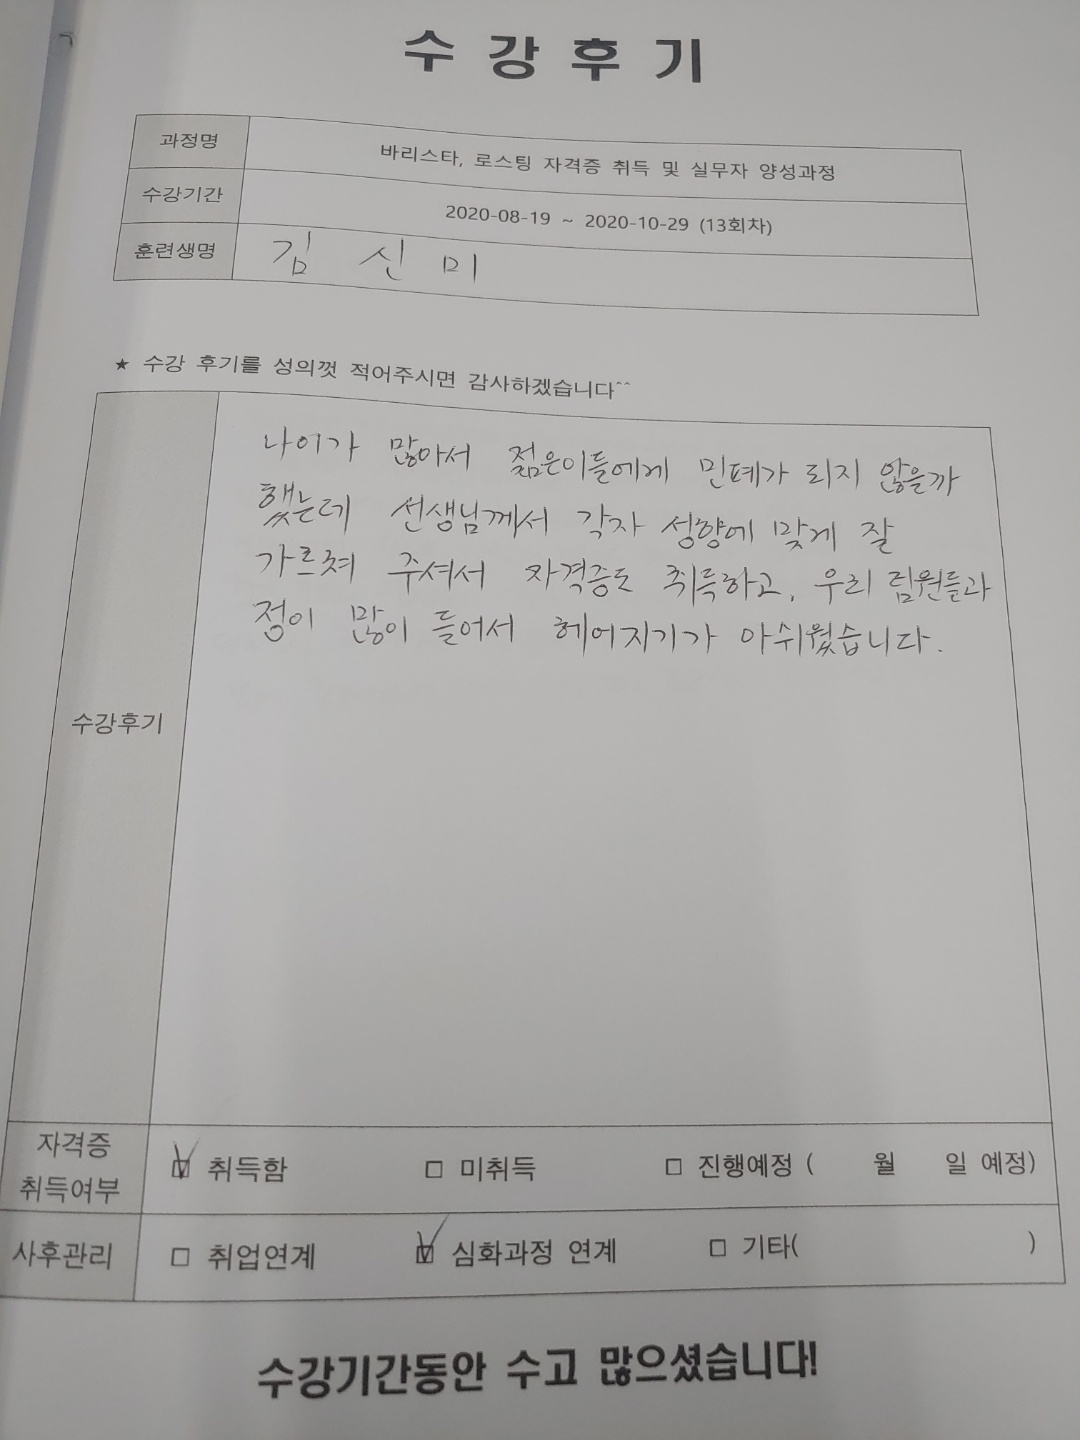 수강후기
과정명 바리스타, 로스팅 자격증 취득 및 실무자 양성과정
수강기간 2020-08-19 ~ 2020-10-29 (13회차)
훈련생명 김 신 미
★ 수강 후기를 성의껏 적어주시면 감사하겠습니다^^
나이가 많아서 젊은이들에게 민폐가 되지 않을까
했는데 선생님께서 각자 성향에 맞게 잘
가르쳐 주셔서 자격증도 취득하고, 우리 팀원들과
정이 많이 들어서 헤어지기가 아쉬웠습니다.
수강후기
자격증
취득여부
☑ 취득함 □ 미취득 □ 진행예정 ( 월 일 예정)
사후관리 □ 취업연계 ☑ 심화과정 연계 □ 기타( )
수강기간동안 수고 많으셨습니다!